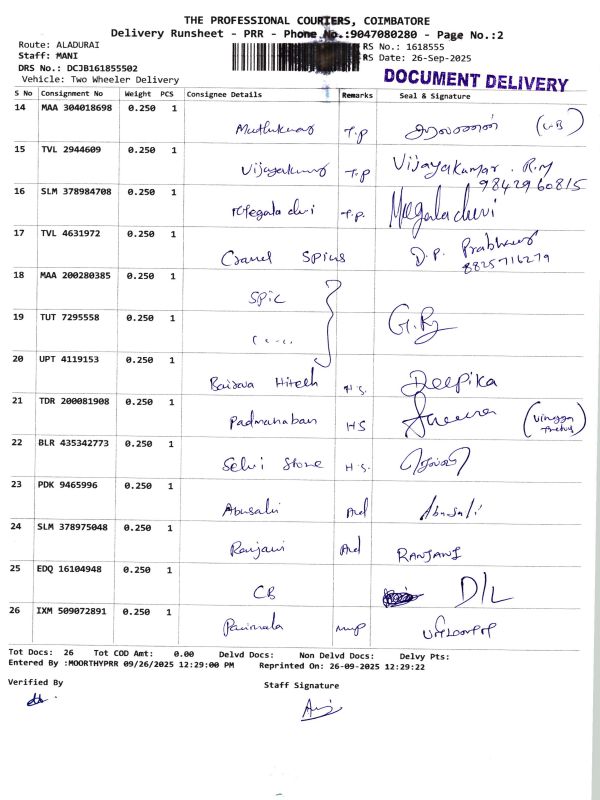 THE PROFESSIONAL COURIERS, COIMBATORE
Delivery Runsheet - PRR - Phone No.:9047080280 - Page No.:2
Route: ALADURAI
RS No.: 1618555
Staff: MANI
RS Date: 26-Sep-2025
DRS No.: DCJB161855502
DOCUMENT DELIVERY
Vehicle: Two Wheeler Delivery
S No Consignment No Weight PCS Consignee Details Remarks Seal & Signature
14 MAA 304018698 0.250 1
Muthukumar T.P
15 TVL 2944609 0.250 1
Vijayakumar T.P Vijayakumar . R.M
9842960815
16 SLM 378984708 0.250 1
Megala devi T.P. Megala devi
17 TVL 4631972 0.250 1
D.P. Prabhu
8825716279
18 MAA 200280385 0.250 1
Spic
19 TUT 7295558 0.250 1
20 UPT 4119153 0.250 1
Hitech H.S. Deepika
21 TDR 200081908 0.250 1
Padmanaban HS
22 BLR 435342773 0.250 1
Selvi Stone H.S.
23 PDK 9465996 0.250 1
Abusali Abusali
24 SLM 378975048 0.250 1
Ranjani RANJANI
25 EDQ 16104948 0.250 1
CB D/L
26 IXM 509072891 0.250 1
Parimala
Tot Docs: 26 Tot COD Amt: 0.00 Delvd Docs: Non Delvd Docs: Delvy Pts:
Entered By :MOORTHYPRR 09/26/2025 12:29:00 PM Reprinted On: 26-09-2025 12:29:22
Verified By
Staff Signature